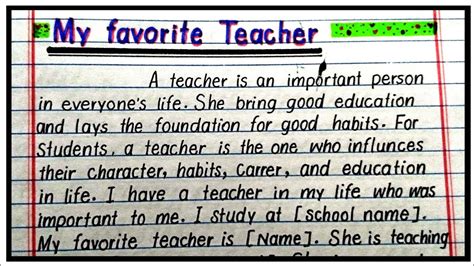 My favorite Teacher
A teacher is an important person
in everyone's life. She bring good education
and lays the foundation for good habits. For
Students, a teacher is the one who influnces
their character, habits, Carrer, and education
in life. I have a teacher in my life who was
important to me. I study at [school name].
My favorite teacher is [Name]. She is teaching